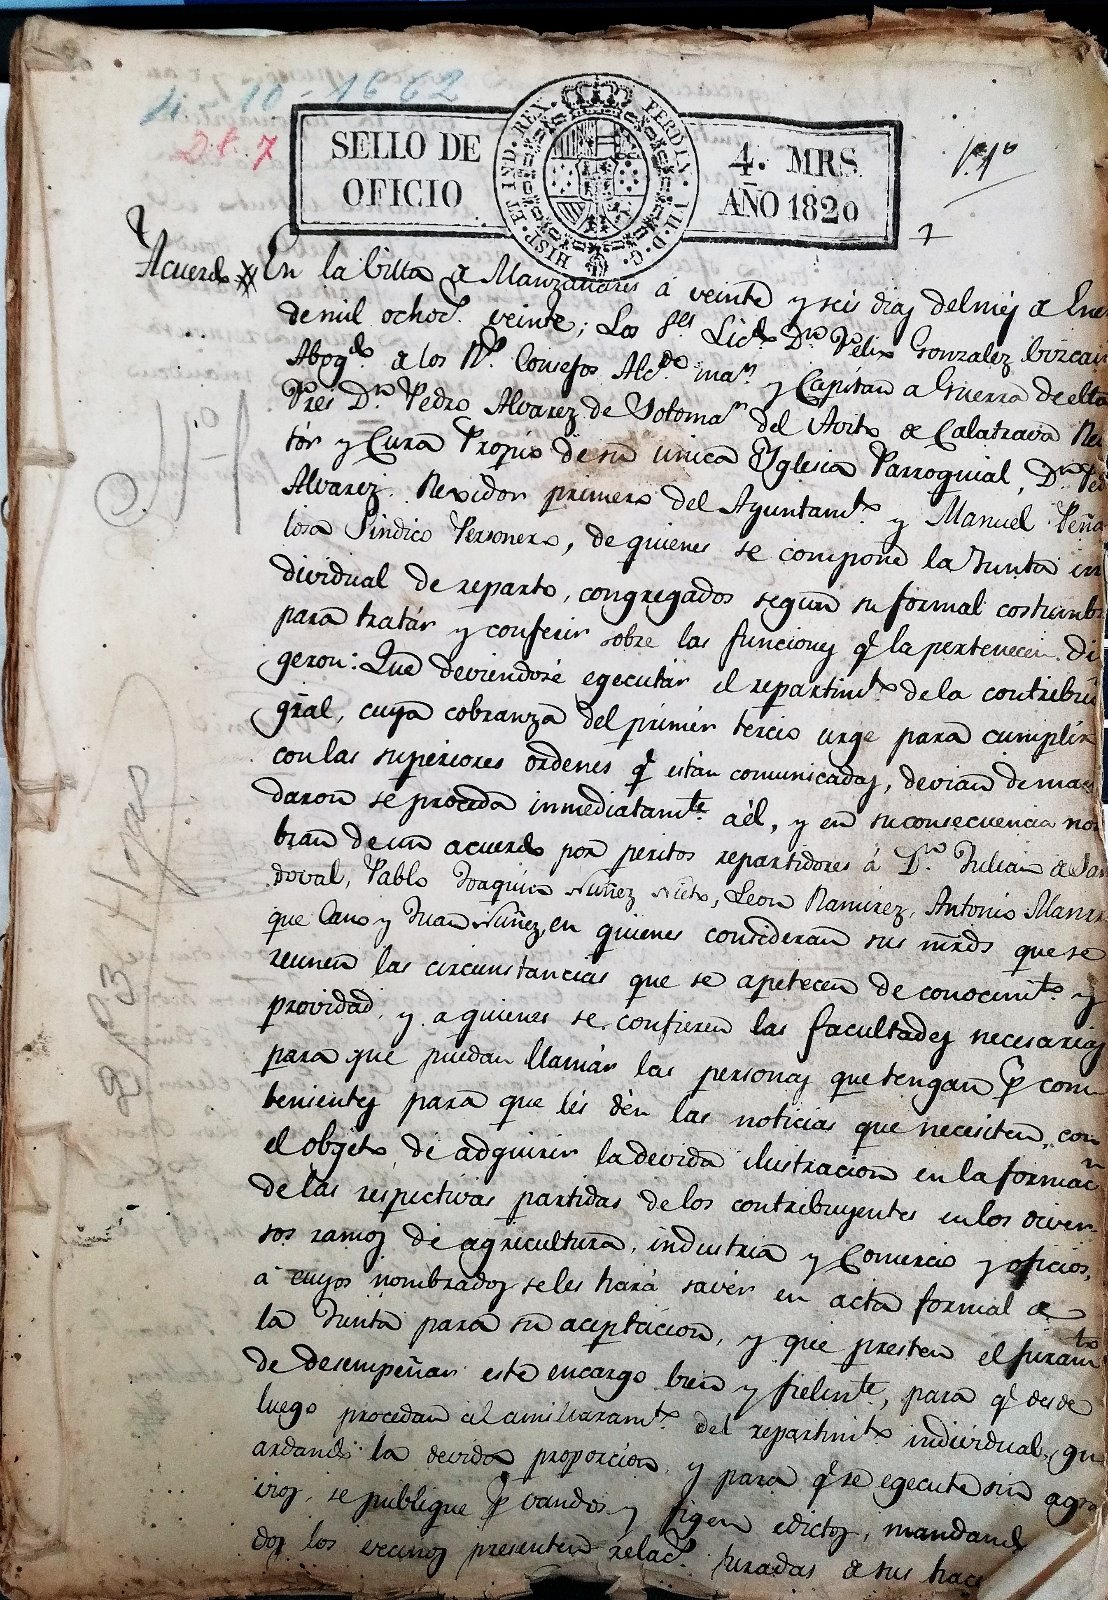 4-10-1662
D.t. 7
SELLO DE
OFICIO
HISP. ET IND. REX. FERDIN. VII. D. G.
4. MRS.
AÑO 1820
1
Acuerdo En la Villa de Manzanares a veinte y seis dias del mes de Ene
de mil ochoc.s veinte; Los S.res Licdo. Dn. Felix Gonzalez
Abogdo. de los Rs. Consejos Alcde. mar. y Capitan a Guerra de esta
Dn. Pedro Alvarez de Sotomar. del Avito de Calatrava Rec
tór y Cura Propio de su unica Yglesia Parroquial, Dn.
Alvarez Rexidor primero del Ayuntamto. y Manuel Peña
losa Sindico Personero, de quienes se compone la Junta in
dividual de reparto, congregados segun su formal costumbr
para tratár y conferir sobre las funciones q.e la pertenecen di
geron: Que deviendose egecutár el repartimto. de la contribu
gral, cuya cobranza del primér tercio urge para cumplir
con las superiores ordenes q.e están comunicadas, devian de man
daron se proceda inmediatamte. a él, y en su consecuencia nom
bran de un acuerdo por peritos repartidores á Dn. Julian de San
doval, Pablo Joaquin Nuñez Nieto, Leon Ramirez, Antonio Manri
que Cano y Juan Nuñez, en quienes consideran sus mrds que se
reunen las circunstancias que se apetecen de conocimto. y
providad, y a quienes se confieren las facultades necesarias
para que puedan llamár las personas que tengan p. com
benientes para que les dén las noticias que necesiten, con
el objeto de adquirir la devida ilustracion en la formacn.
de las respectivas partidas de los contribuyentes en los diver
sos ramos de agricultura, industria y Comercio y oficios,
a cuyos nombrados se les hará savér en acta formal de
la Junta para su aceptacion, y que presten el juramto.
de desempeñar este encargo bien y fielmte., para q.e desde
luego procedan al amillaramto. del repartimto. individual, gu
ardando la devida proporcion, y para q.e se egecute sin agra
vios, se publique p. vandos y figen edictos, mandando
dos los vecinos presenten relac.s juradas de sus hac
213 Hojas